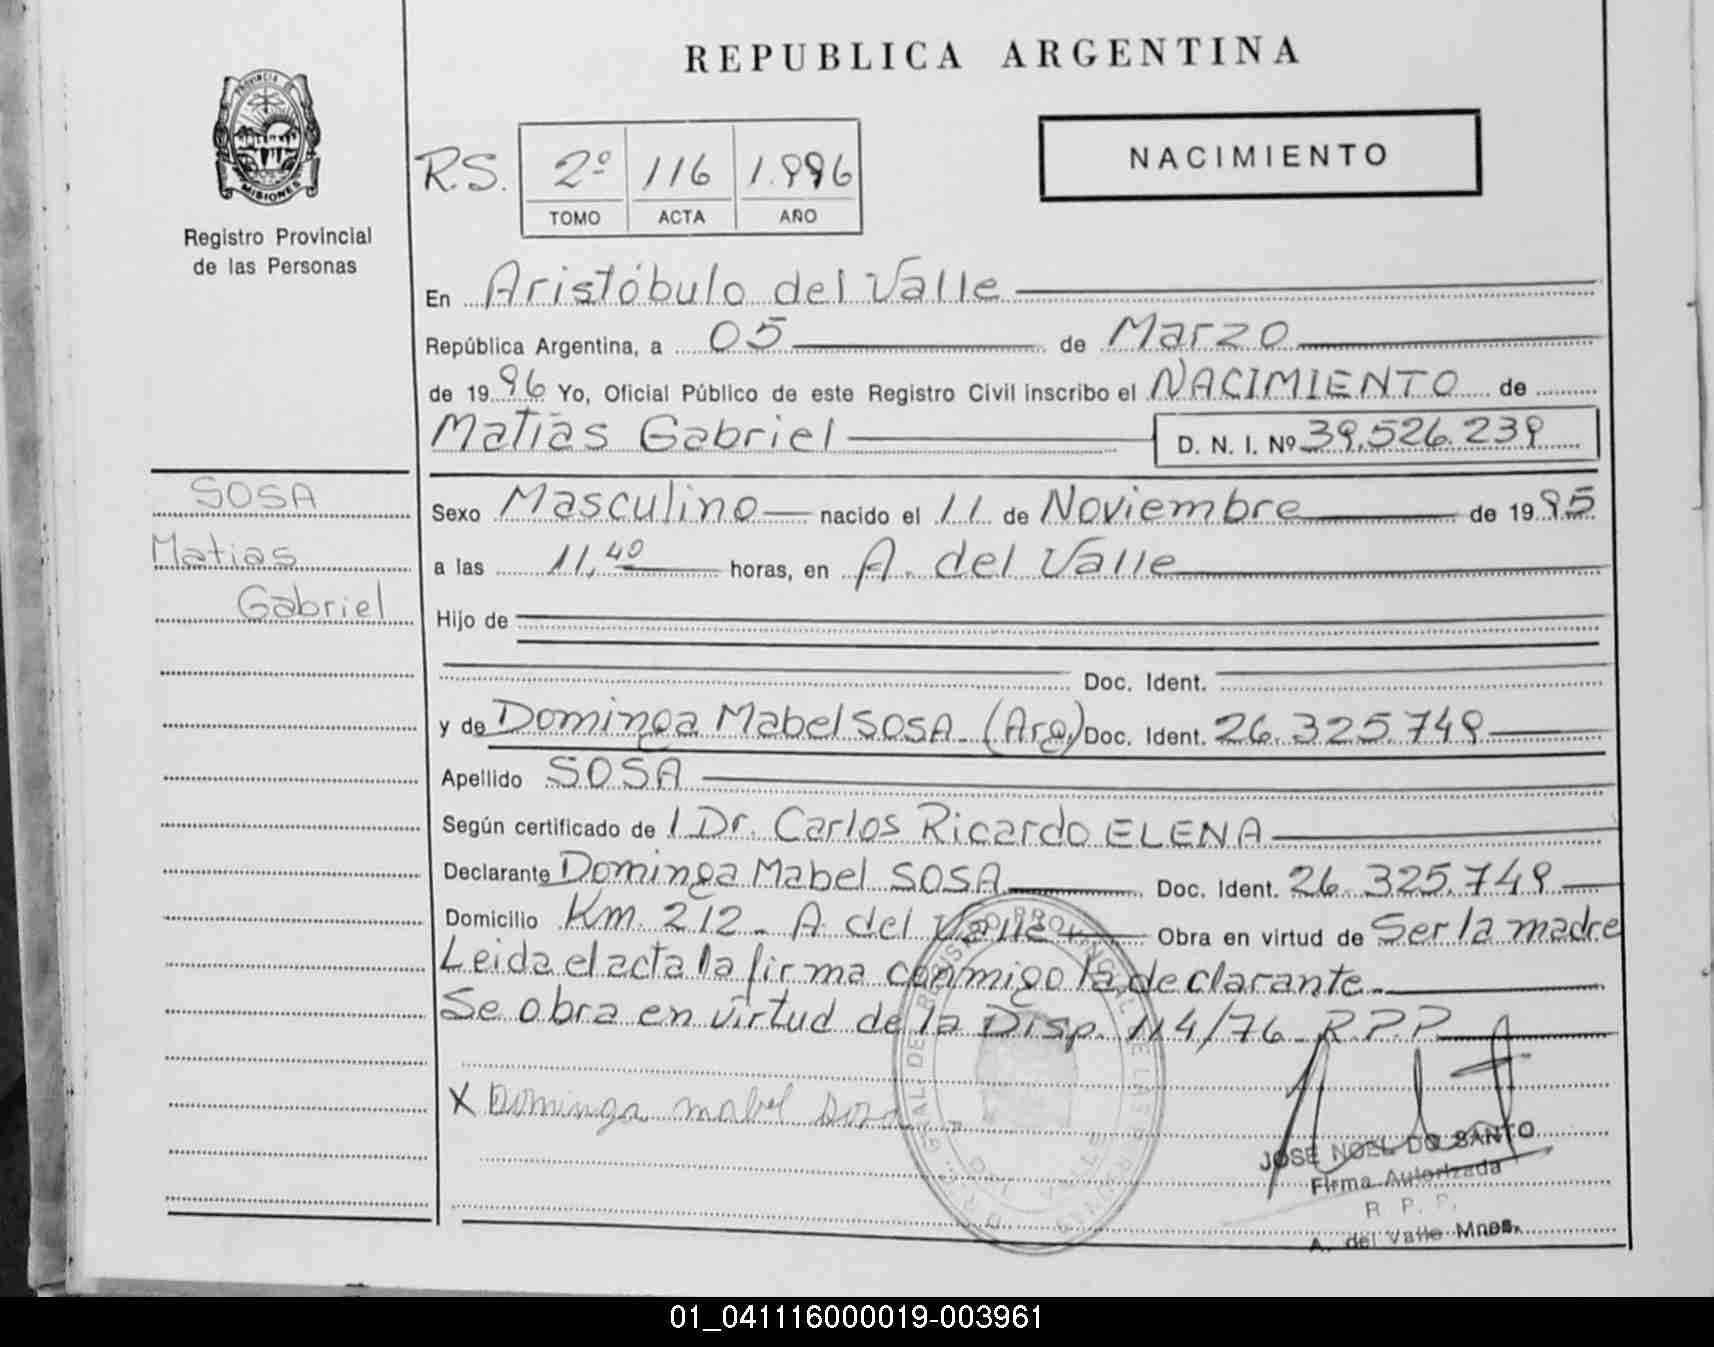 REPUBLICA ARGENTINA
PROVINCIA DE
MISIONES
Registro Provincial
de las Personas
NACIMIENTO
R.S. 2º 116 1.996
TOMO ACTA AÑO
En Aristóbulo del Valle
República Argentina, a 05 de Marzo
de 1996 Yo, Oficial Público de este Registro Civil inscribo el NACIMIENTO de
Matías Gabriel D. N. I. Nº 39.526.239
SOSA
Matias
Gabriel
Sexo Masculino nacido el 11 de Noviembre de 1995
a las 11,40 horas, en A. del Valle
Hijo de
Doc. Ident.
y de Dominga Mabel SOSA-(Arg.) Doc. Ident. 26.325.749
Apellido SOSA
Según certificado de l Dr. Carlos Ricardo ELENA
Declarante Dominga Mabel SOSA Doc. Ident. 26.325.749
Domicilio Km. 212 - A del Valle Obra en virtud de Ser la madre
Leida el acta la firma conmigo la declarante.
Se obra en virtud de la Disp. 114/76 R.P.P
X Dominga mabel Sosa
JOSE NOEL DO SANTO
Firma Autorizada
R. P. P.
A. del Valle Mnes.
01_041116000019-003961